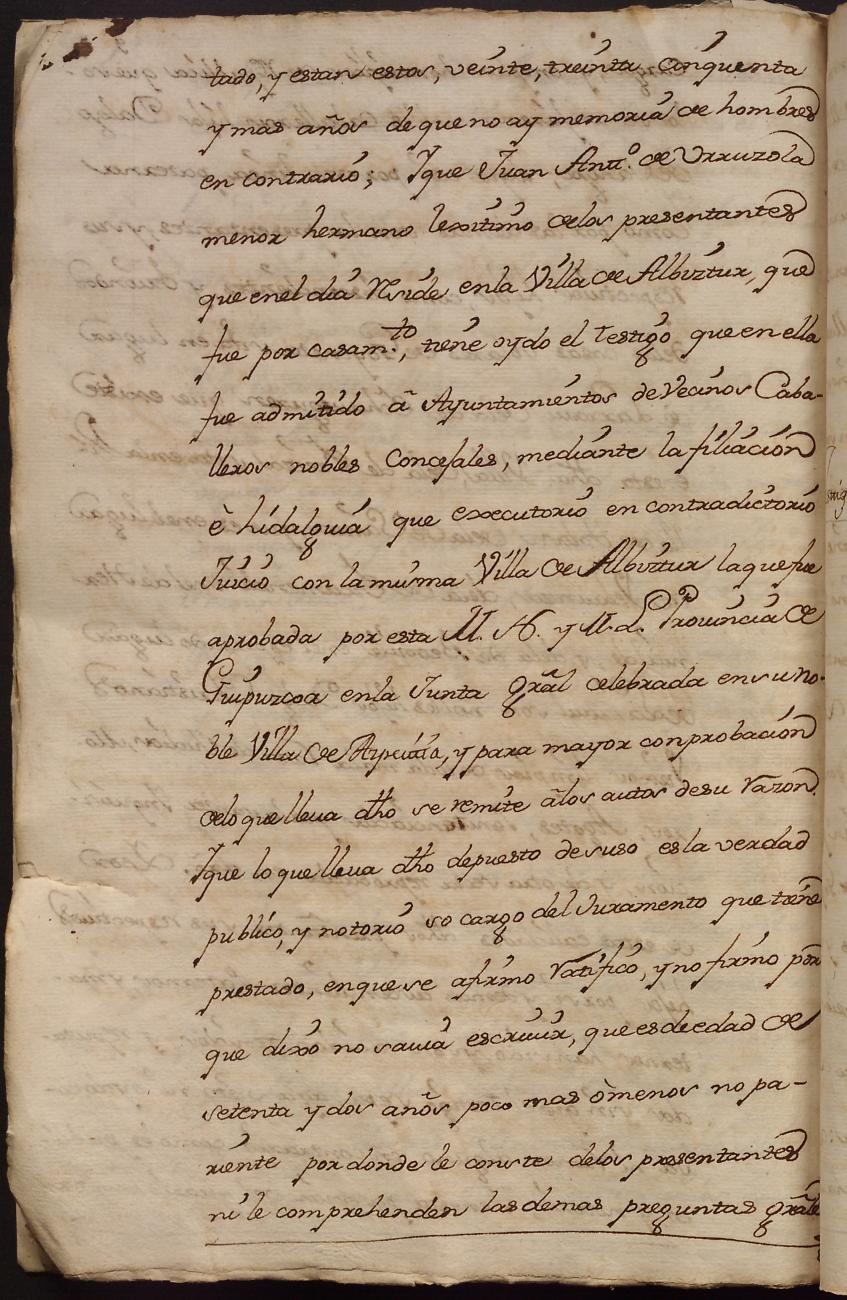 tado, y estan estos, veinte, treinta cinquenta
y mas años de que no ay memoria de hombres
en contrario; Yque Juan Antt.º de Urruzola
menor hermano lexitimo delos presentantes
que enel dia Reside enla Villa de Albiztur, que
fue por casam.to, tiene oydo el testigo que en ella
fue admitido â Ayuntamientos de Vecinos Caba-
lleros nobles Concejales, mediante la filiación
è hidalguia que executorio en contradictorio
Juicio con la misma Villa de Albiztur la que fue
aprobada por esta M. N. y M. L. Provincia de
Guipuzcoa enla Junta Grãl celebrada en su no-
ble Villa de Azpeitia, y para mayor conprobación
delo que lleua dho se remite âlos autos desu razon.
Yque lo que lleua dho depuesto desuso es la verdad
publico, y notorio so cargo del Juramento que tiene
prestado, enque se afirmo Ratifico, y no firmo por
que dixo no sauia escriuir, que es de edad de
setenta y dos años poco mas ò menos no pa-
riente por donde le conste delos presentantes
ni le comprehenden las demas preguntas grãles